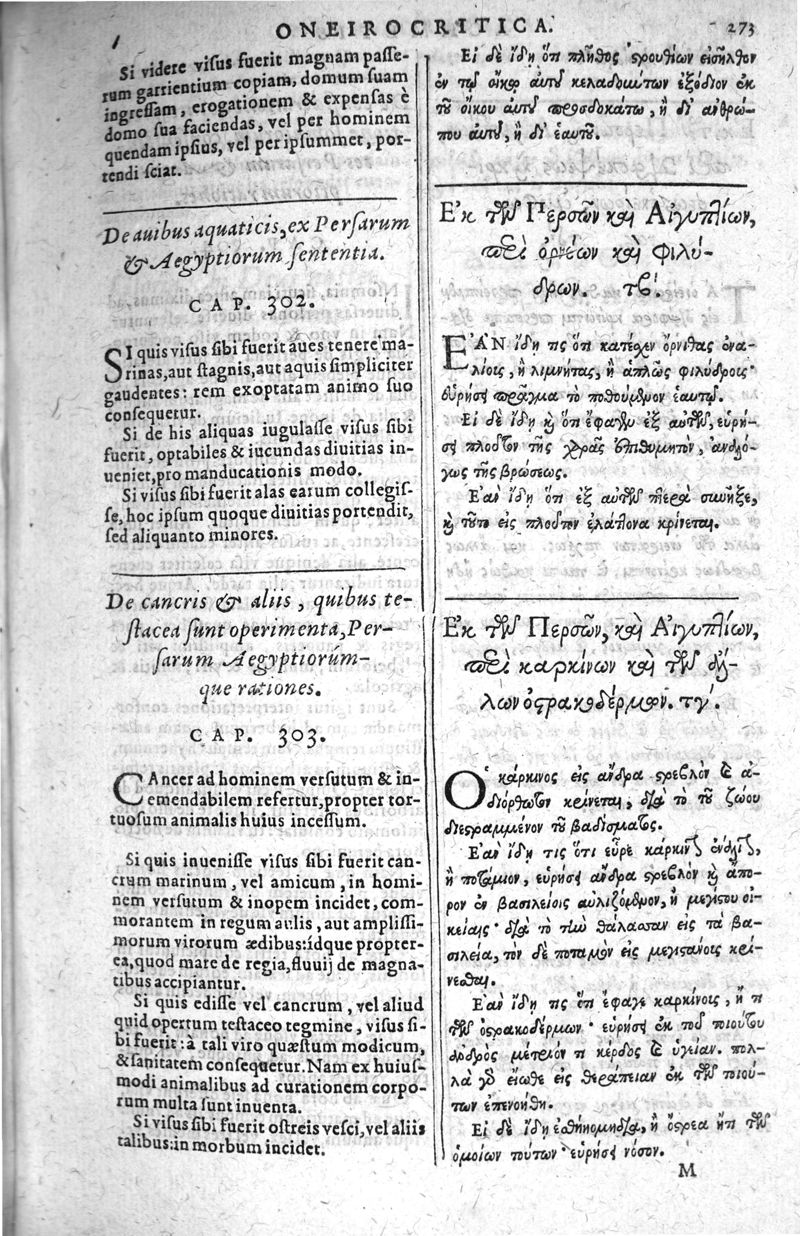 ONEIROCRITICA.
273
Si videre visus fuerit magnam passe-
rum garrientium copiam, domum suam
ingressam, erogationem & expensas è
domo sua faciendas, vel per hominem
quendam ipsius, vel per ipsummet, por-
tendi sciat.
De auibus aquaticis, ex Persarum
& Aegyptiorum sententia.
CAP. 302.
SI quis visus sibi fuerit aues tenere ma-
rinas, aut stagnis, aut aquis simpliciter
gaudentes: rem exoptatam animo suo
consequetur.
Si de his aliquas iugulasse visus sibi
fuerit, optabiles & iucundas diuitias in-
ueniet, pro manducationis modo.
Si visus sibi fuerit alas earum collegis-
se, hoc ipsum quoque diuitias portendit,
sed aliquanto minores.
De cancris & aliis, quibus te-
stacea sunt operimenta, Per-
sarum Aegyptiorúm-
que rationes.
CAP. 303.
CAncer ad hominem versutum & in-
emendabilem refertur, propter tor-
tuosum animalis huius incessum.
Si quis inuenisse visus sibi fuerit can-
crum marinum, vel amicum, in homi-
nem versutum & inopem incidet, com-
morantem in regum aulis, aut amplissi-
morum virorum ædibus: ídque propter-
ea, quod mare de regia, fluuij de magna-
tibus accipiantur.
Si quis edisse vel cancrum, vel aliud
quid opertum testaceo tegmine, visus si-
bi fuerit: à tali viro quæstum modicum,
& sanitatem consequetur. Nam ex huius-
modi animalibus ad curationem corpo-
rum multa sunt inuenta.
Si visus sibi fuerit ostreis vesci, vel aliis
talibus: in morbum incidet.
Εἰ δὲ ἴδῃ ὅτι πλῆθος στρουθίων εἰσῆλθον
ἐν τῷ οἴκῳ αὐτοῦ κελαδούντων ἐξόδιον ἐκ
τοῦ οἴκου αὐτοῦ προσδοκάτω, ἢ δι' ἀνθρώ-
που αὐτοῦ, ἢ δι' ἑαυτοῦ.
Ἐκ τῶν Περσῶν καὶ Αἰγυπτίων,
περὶ ὀρνέων καὶ φιλύ-
δρων. τβʹ.
ΕΑΝ ἴδῃ τις ὅτι κατέχεν ὄρνιθας ἐνα-
λίοις, ἢ λιμνήτας, ἢ ἁπλῶς φιλύδροις·
εὑρήσει πρᾶγμα τὸ ποθούμενον ἑαυτῷ.
Εἰ δὲ ἴδῃ καὶ ὅτι ἔσφαξεν ἐξ αὐτῶν, εὑρή-
σει πλοῦτον τῆς χαρᾶς ἐπιθυμητὸν, ἀναλό-
γως τῆς βρώσεως.
Ἐὰν ἴδῃ ὅτι ἐξ αὐτῶν πτερὰ συνῆξε,
καὶ τοῦτο εἰς πλοῦτον ἐλάττονα κρίνεται.
Ἐκ τῶν Περσῶν, καὶ Αἰγυπτίων,
περὶ καρκίνων καὶ τῶν ἄλ-
λων ὀστρακοδέρμων. τγʹ.
Ὁ κάρκινος εἰς ἄνδρα στρεβλὸν καὶ ἀ-
διόρθωτον κρίνεται, διὰ τὸ τοῦ ζώου
διεστραμμένον τοῦ βαδίσματος.
Ἐὰν ἴδῃ τις ὅτι εὗρε κάρκινον ἐνάλιον,
ἢ ποτάμιον, εὑρήσει ἄνδρα στρεβλὸν καὶ ἄπο-
ρον ἐν βασιλείοις αὐλιζόμενον, ἢ μεγίστου οἰ-
κείαις· διὰ τὸ τὴν θάλασσαν εἰς τὰ βα-
σίλεια, τὸν δὲ ποταμὸν εἰς μεγιστάνοις κρί-
νεσθαι.
Ἐὰν ἴδῃ τις ὅτι ἔφαγε καρκίνοις, ἤ τι
τῶν ὀστρακοδέρμων· εὑρήσει ἐκ τοῦ ποιούτου
ἀνδρὸς μέτριόν τι κέρδος καὶ ὑγείαν. πολ-
λὰ γὰρ εἴωθε εἰς θεράπειαν ἐκ τῶν τοιού-
των ἐπενοήθη.
Εἰ δὲ ἴδῃ ἢ ὄστρεα ἤτι τῶν
ὁμοίων τούτων· εὑρήσει νόσον.
M